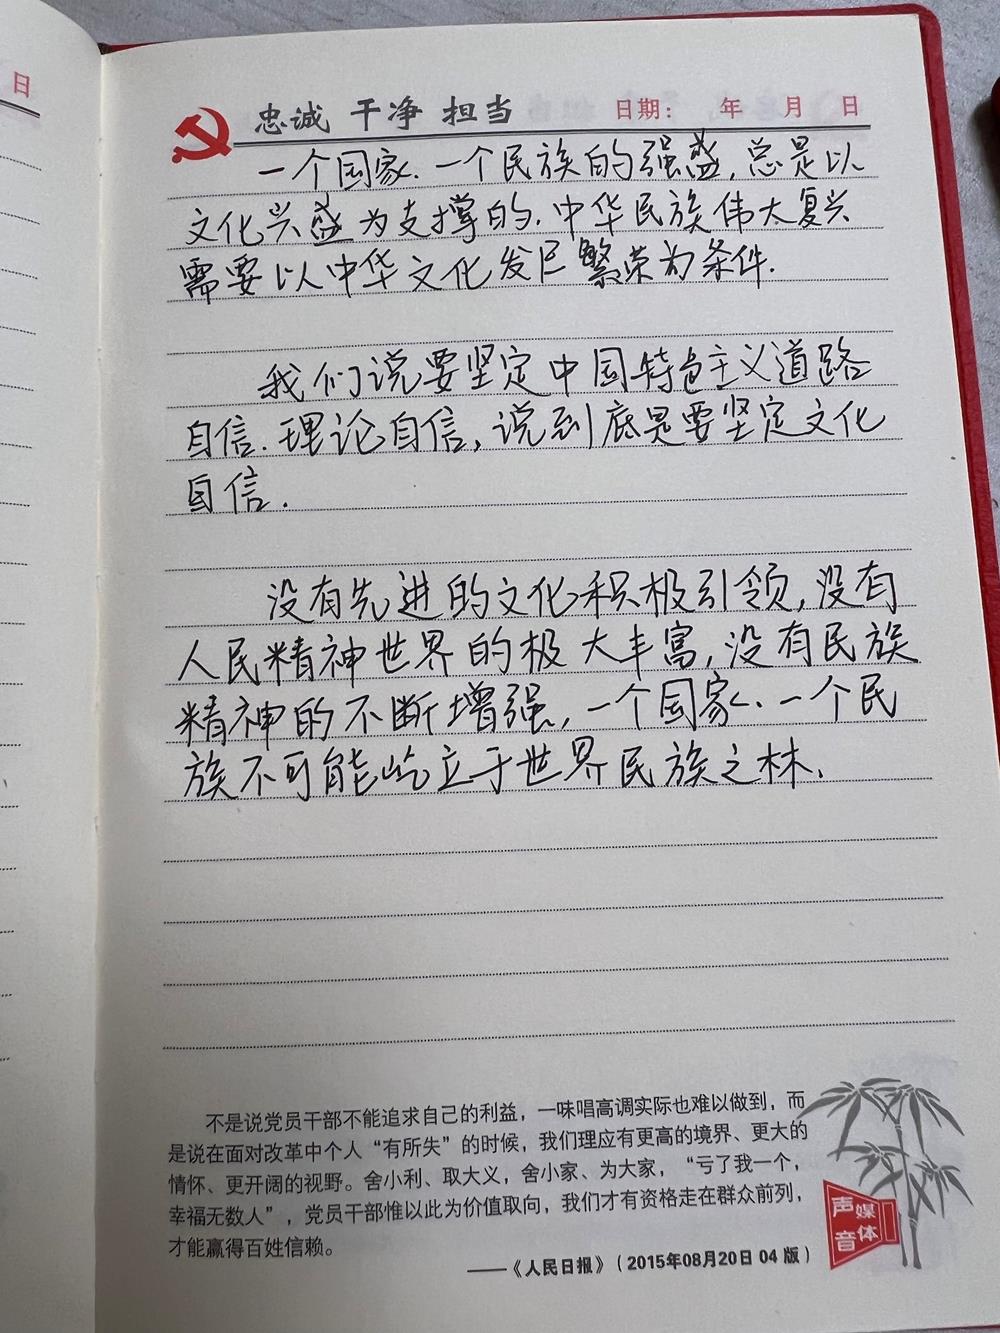 日
忠诚 干净 担当 日期： 年 月 日
一个国家、一个民族的强盛，总是以
文化兴盛为支撑的，中华民族伟大复兴
需要以中华文化发展繁荣为条件.
我们说要坚定中国特色主义道路
自信.理论自信，说到底是要坚定文化
自信.
没有先进的文化积极引领，没有
人民精神世界的极大丰富，没有民族
精神的不断增强，一个国家、一个民
族不可能屹立于世界民族之林.
不是说党员干部不能追求自己的利益，一味唱高调实际也难以做到，而
是说在面对改革中个人“有所失”的时候，我们理应有更高的境界、更大的
情怀、更开阔的视野。舍小利、取大义，舍小家、为大家，“亏了我一个，
幸福无数人”，党员干部惟以此为价值取向，我们才有资格走在群众前列，
才能赢得百姓信赖。
——《人民日报》（2015年08月20日 04 版）
媒体
声音